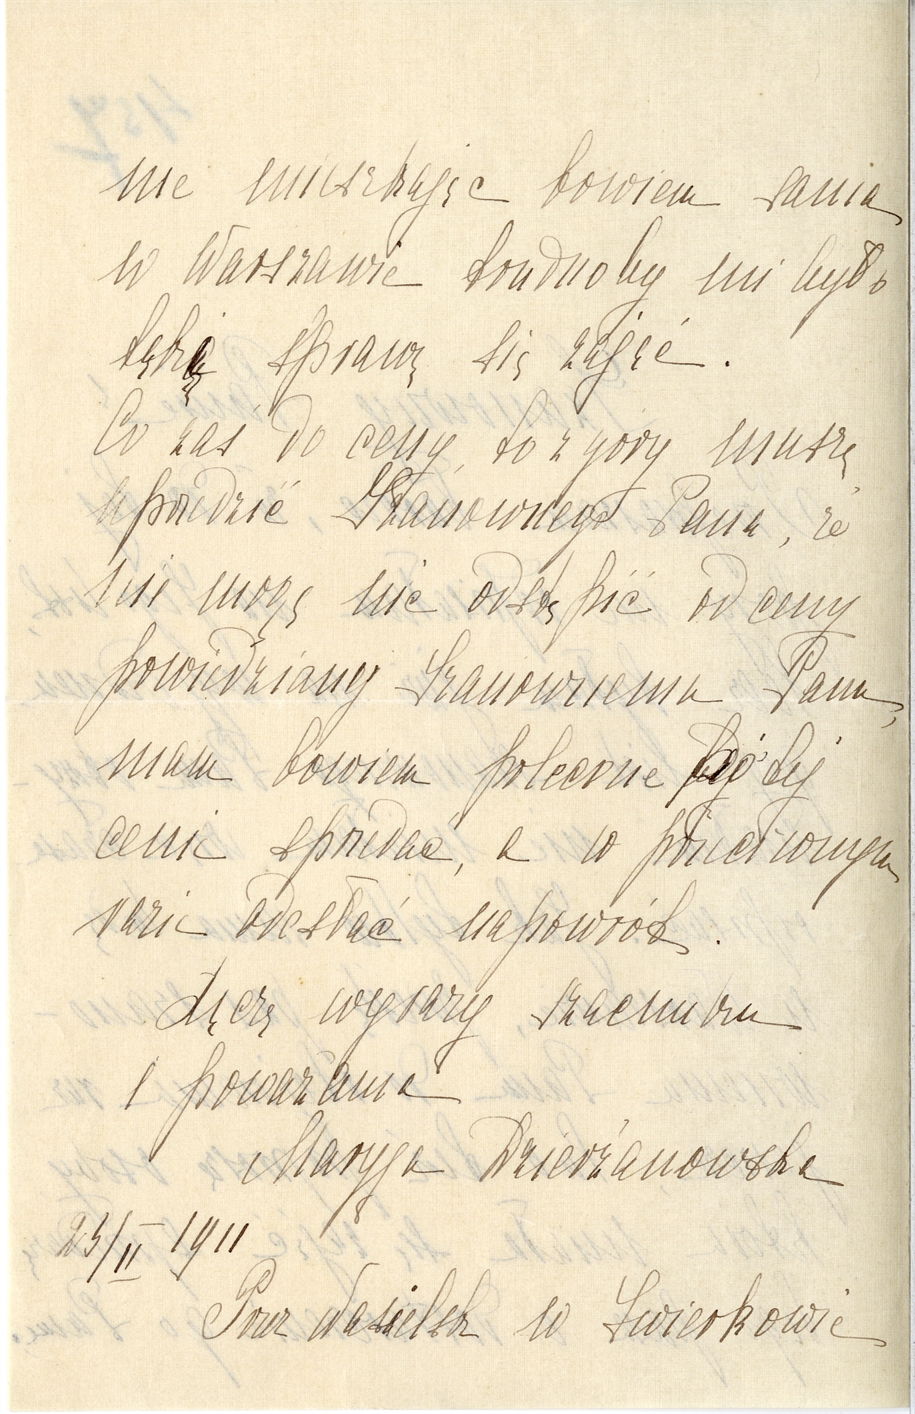 nie mieszkając bowiem sama
w Warszawie trudnoby mi było
taką sprawą się zająć.
Co zaś do ceny to z góry muszę
uprzedzić Szanownego Pana, że
nie mogę nic odstąpić od ceny
powiedzianej Szanownemu Panu,
mam bowiem polecone po tej
cenie sprzedać, a w przeciwnym
razie odesłać napowrót.
Łączę wyrazy szacunku
i poważania
Maryja Dzierżanowska
23/II 1911
w Świerkowie